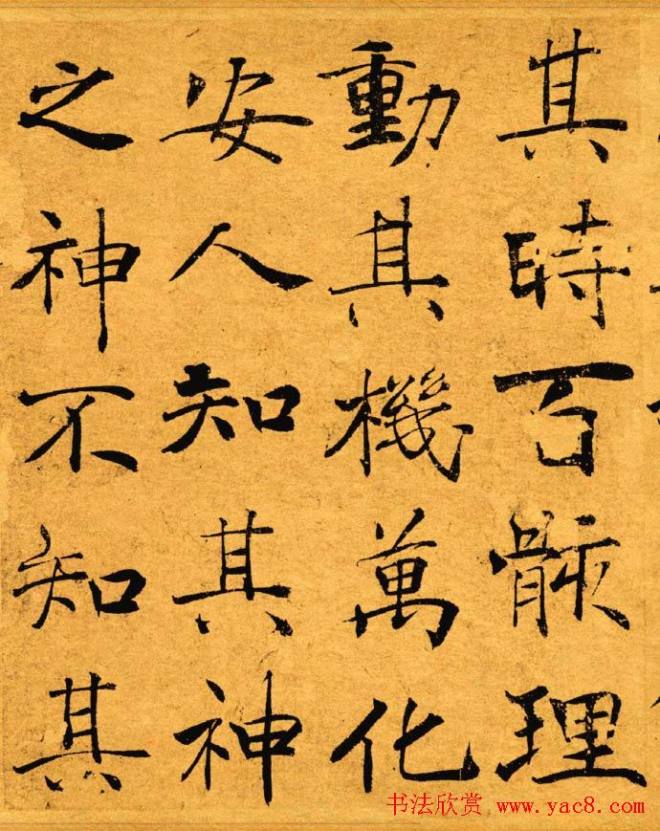 其時百骸理
動其機萬化
安人知其神
之神不知其
书法欣赏 www.yac8.com